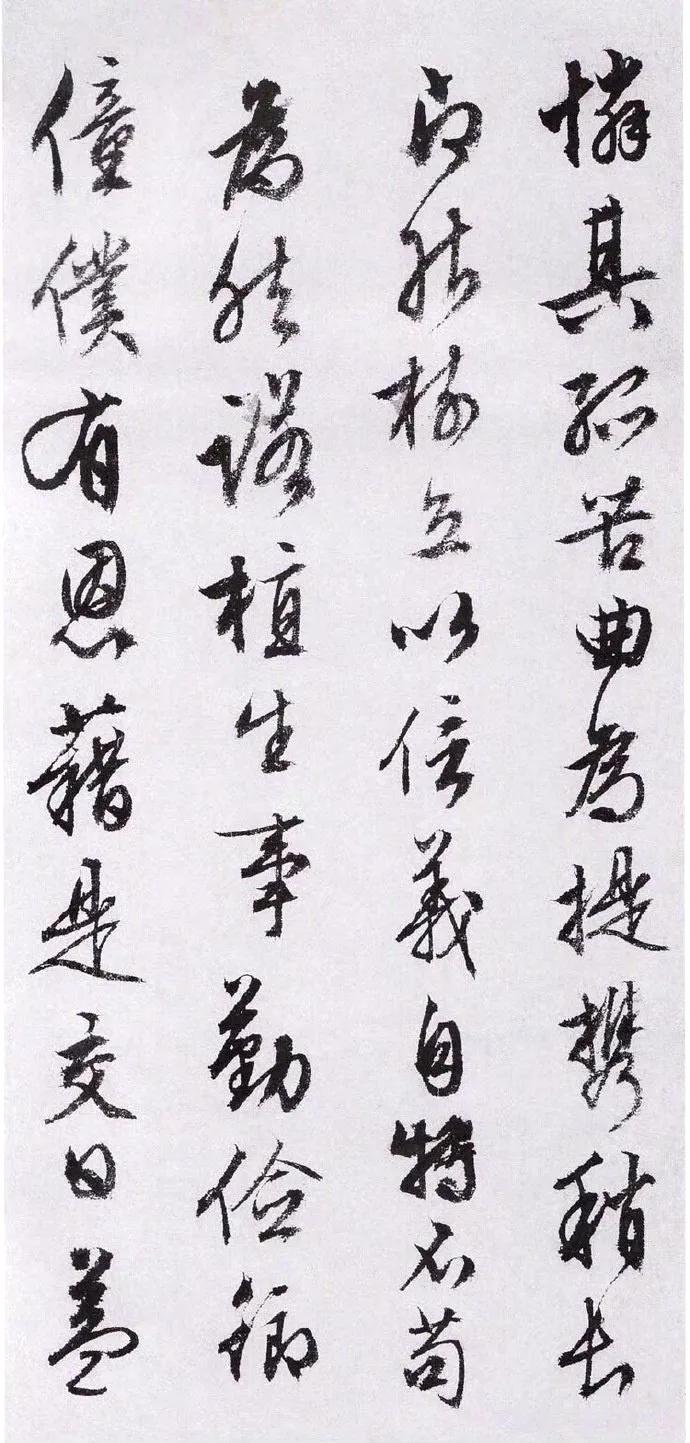 憐其孤苦曲為提携稍長
即能樹立以信義自持不苟
為然諾植生事勤儉御
僮僕有恩藉是交日益